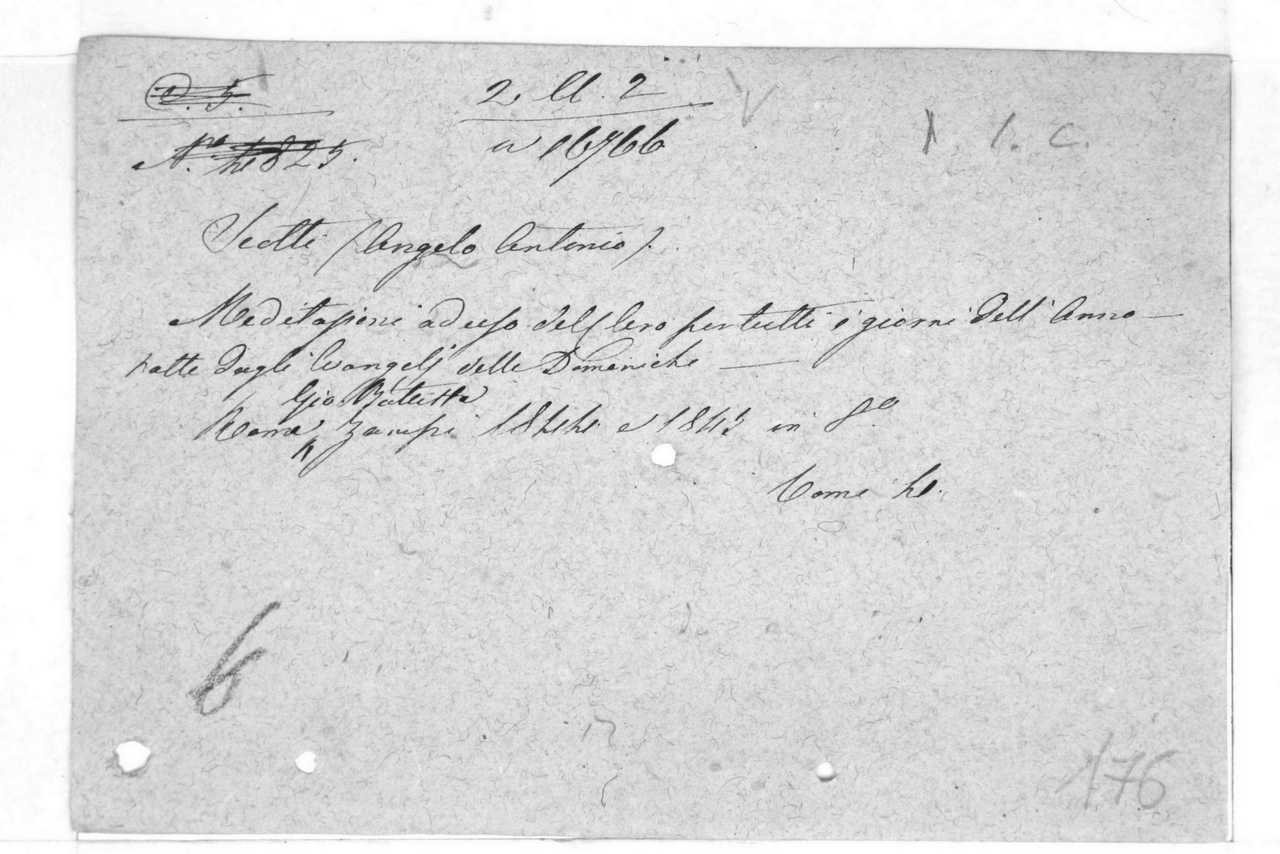 2. U. 2
N. 1. c.
a 16766
Scotti (Angelo Antonio).
Meditazioni ad uso del Clero per tutti i giorni dell' Anno —
tratte dagli Evangelj delle Domeniche —
Gio Battista
Roma Zampi 1844 e 1845 in 8°
Tome 4.
6
176